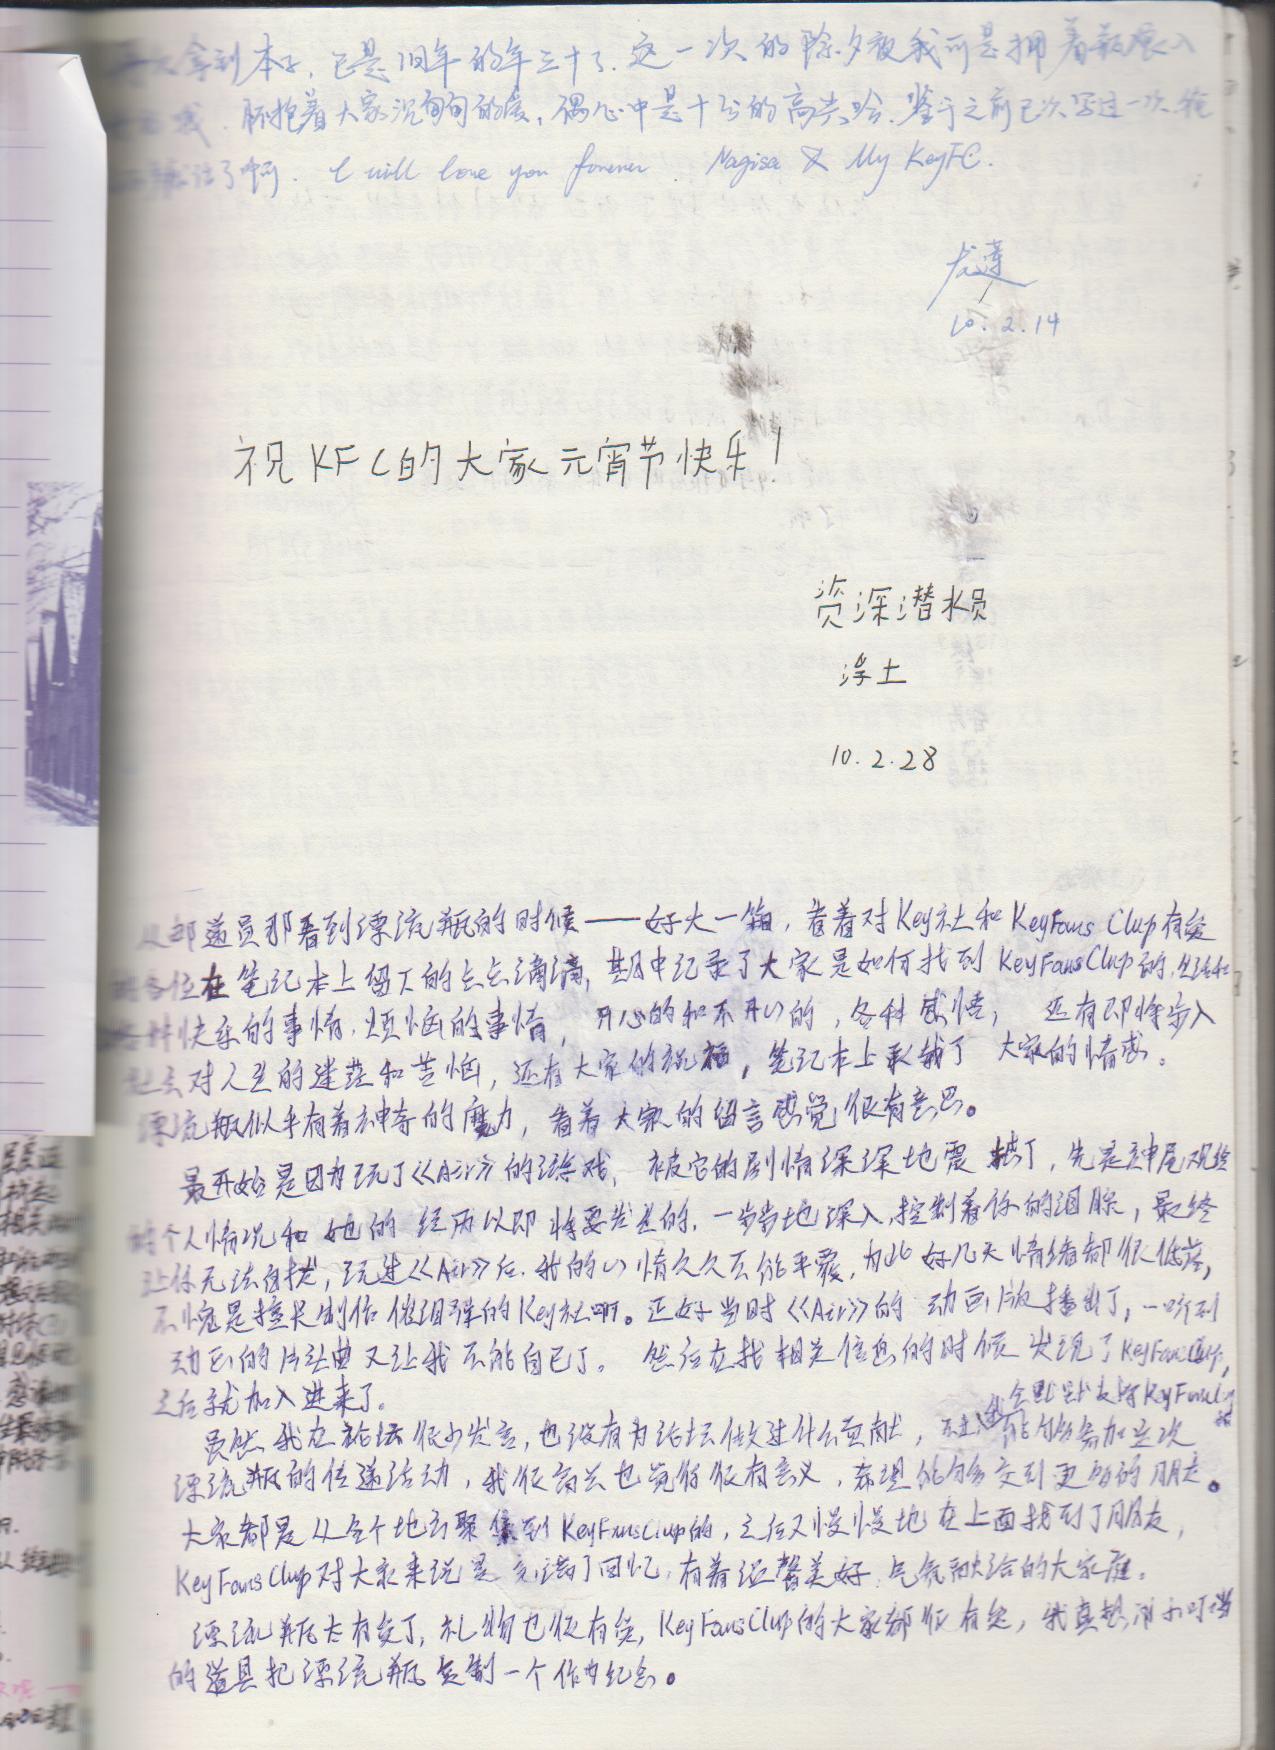 拿到本子，已是旧年的年三十了，这一次的除夕夜我可是拥着瓶子入
怀抱着大家沉甸甸的爱，偶心中是十分的高兴哈，鉴于之前已经写过一次
了啊. I will love you forever. Nagisa & My KeyFC.
10.2.14
祝KFC的大家元宵节快乐！
资深潜水员
浮土
10.2.28
从邮递员那看到漂流瓶的时候——好大一箱，看着对Key社和KeyFans Clup有爱
的各位在笔记本上留下的点点滴滴，其中记录了大家是如何找到KeyFansClup的，生活和
各种快乐的事情，烦恼的事情，开心的和不开心的，各种感悟，还有即将步入
社会对人生的迷茫和苦恼，还有大家的祝福，笔记本上承载了大家的情感。
漂流瓶似乎有着神奇的魔力，看着大家的留言感觉很有意思。
最开始是因为玩了《Air》的游戏，被它的剧情深深地震撼了，先是神尾观铃
的个人情况和她的经历以即将要发生的，一步步地深入，控制着你的泪腺，最终
让你无法自拔，玩过《Air》后，我的心情久久不能平覆，为此好几天情绪都很低落，
不愧是擅长制作催泪弹的Key社啊。还好当时《Air》的动画版播出了，一听到
动画的片头曲又让我不能自已了。然后在找相关信息的时候发现了KeyFansClup，
之后就加入进来了。
虽然我在论坛很少发言，也没有为论坛做过什么贡献，不过我会默默支持KeyFansClup 能够参加这次
漂流瓶的传递活动，我很高兴也觉得很有意义，希望能够交到更多的朋友。
大家都是从各个地方聚集到KeyFansClup的，之后又慢慢地在上面找到了朋友，
KeyFansClup对大家来说是充满了回忆，有着温馨美好，气氛融洽的大家庭。
漂流瓶太有爱了，礼物也很有爱，KeyFansClup的大家都很有爱，我真想用小叮当
的道具把漂流瓶复制一个作为纪念。